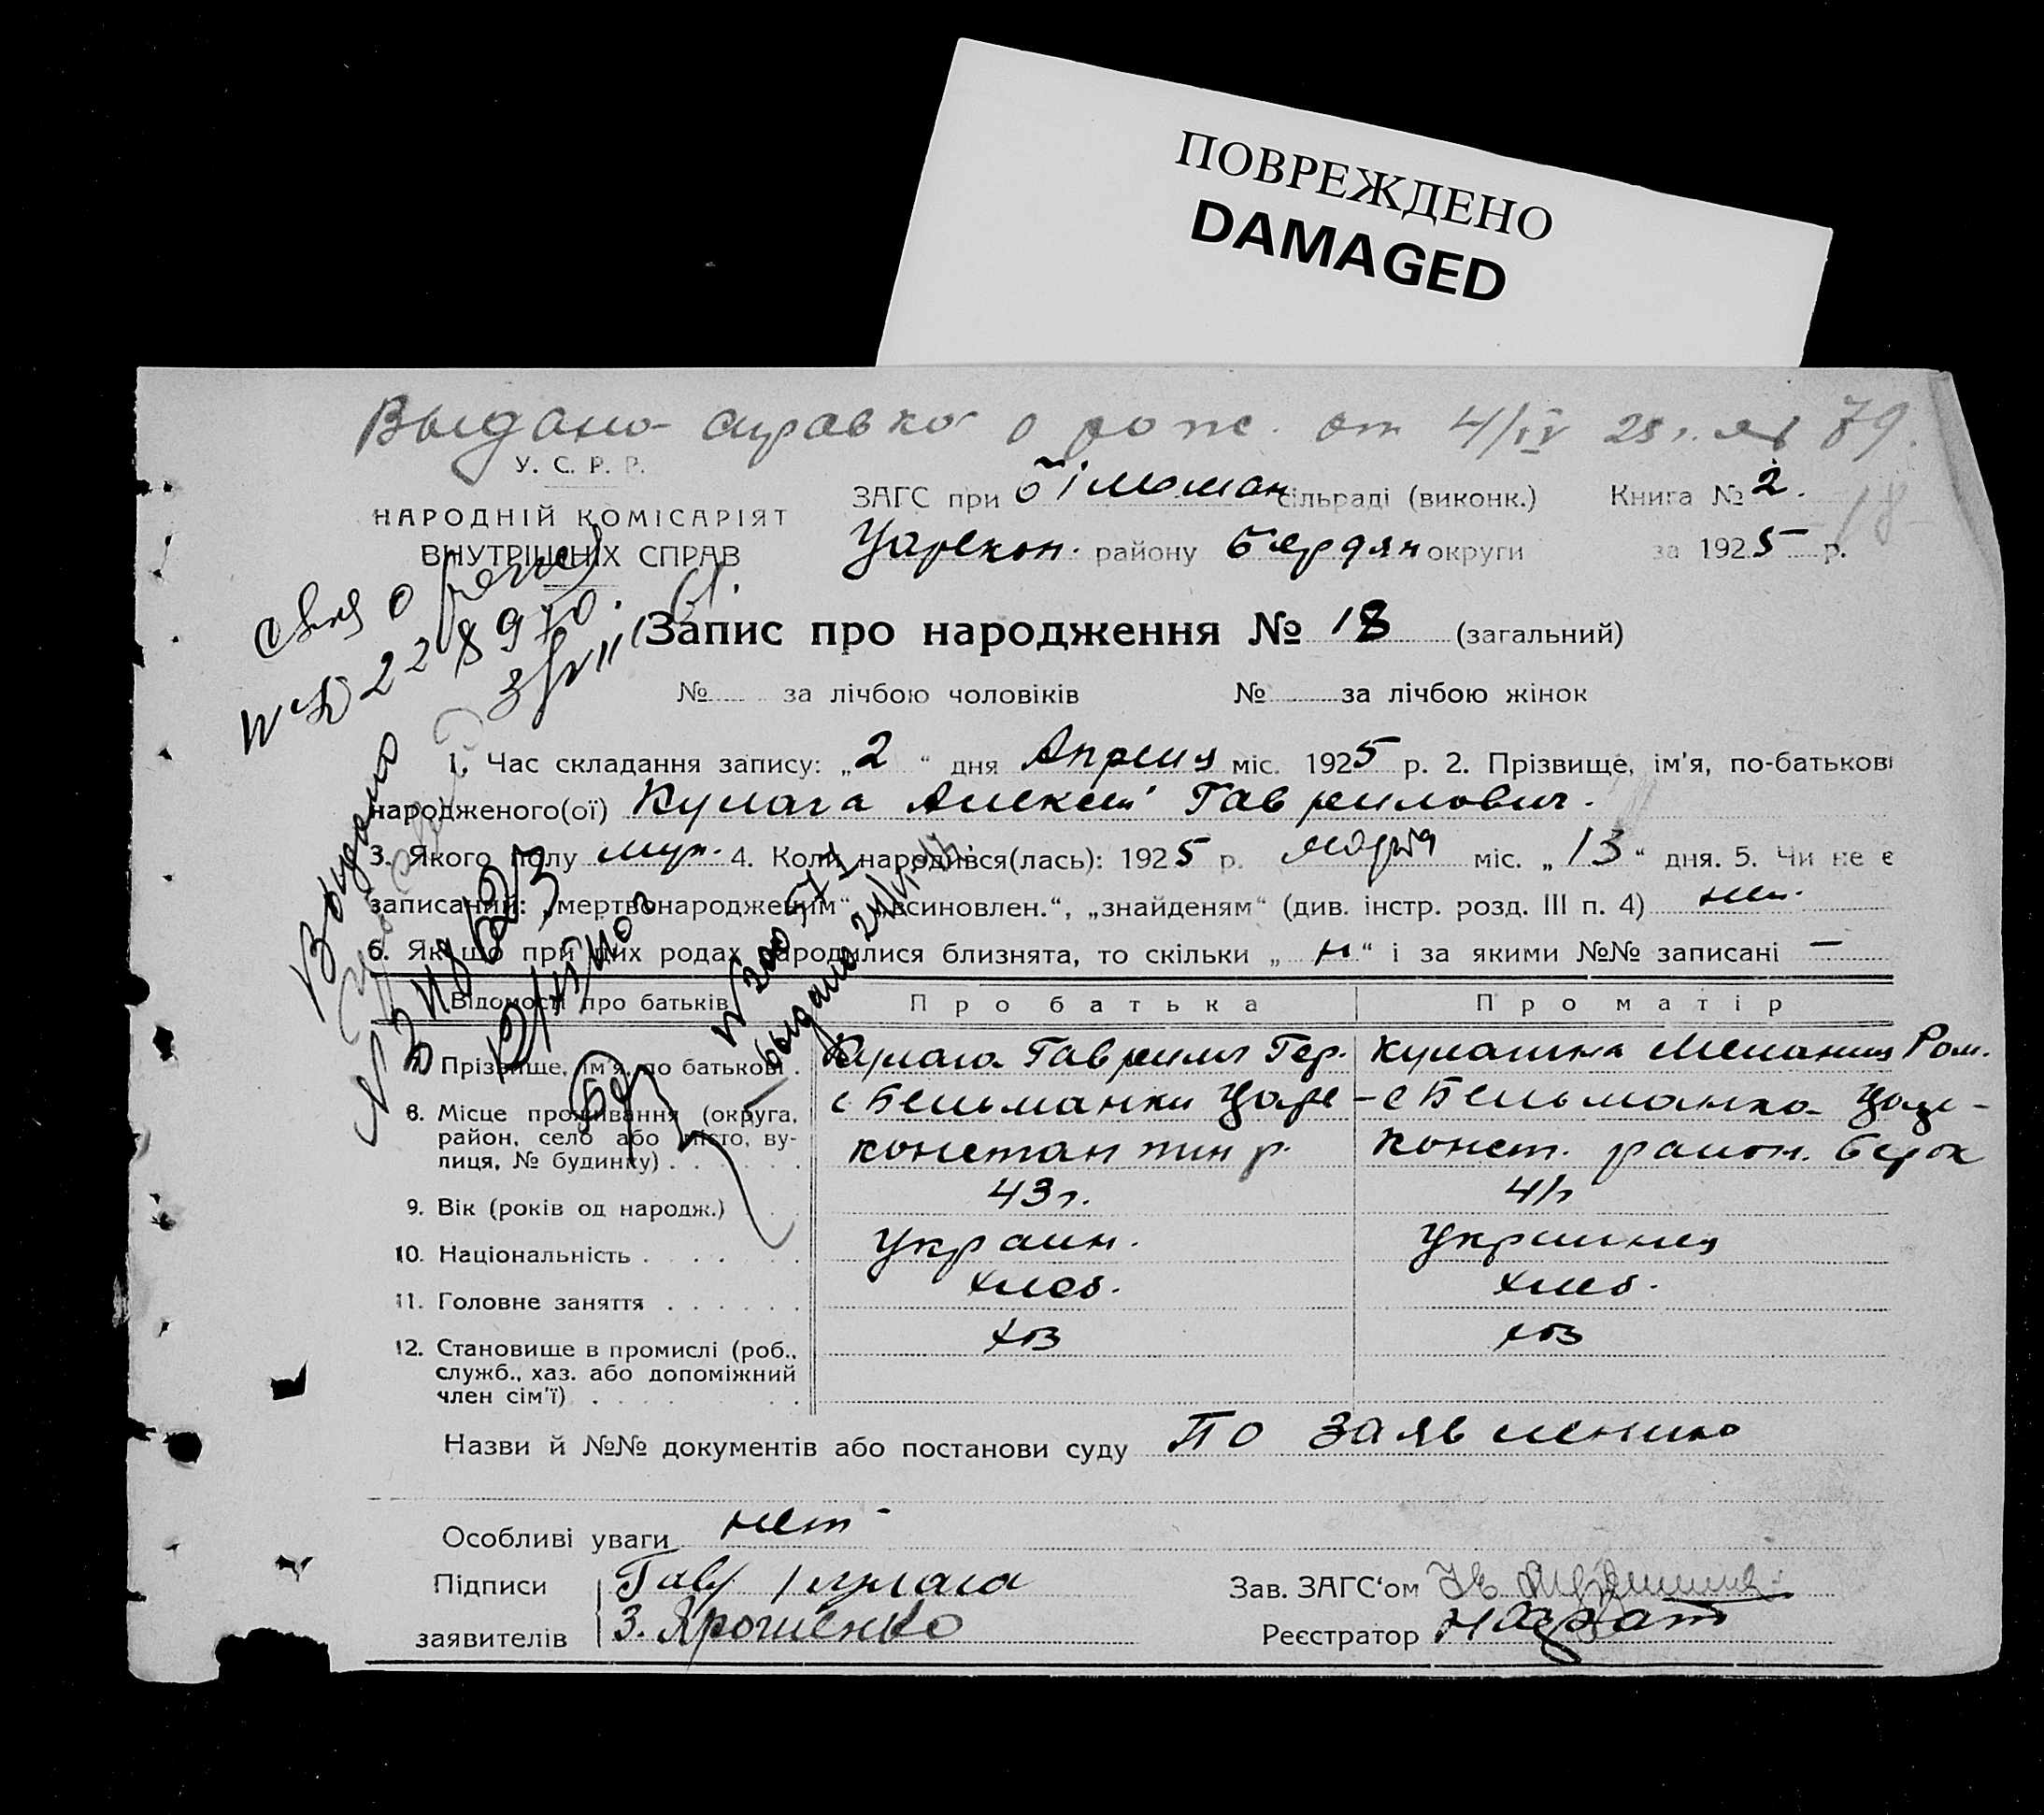 ПОВРЕЖДЕНО
DAMAGED
Выдано справка о рож. от 4/IV 25 г. 79.
У. С. Р. Р.
НАРОДНІЙ КОМІСАРІЯТ
ВНУТРІШНІХ СПРАВ
ЗАГС при Більман сільраді (виконк.) Книга № 2.
Царекон. району Бердян округи за 1925 р.
18
Запис про народження № 18 (загальний)
№ за лічбою чоловіків № за лічбою жінок
1. Час складання запису: „2“ дня Апреля міс. 1925 р. 2. Прізвище, ім'я, по-батькові
народженого(ої) Кулага Алексей Гаврилович.
3. Якого полу муж. 4. Коли народився(лась): 1925 р. марта міс. „13“ дня. 5. Чи не є
записаний: „мертвонародженим“, „всиновлен.“, „знайденям“ (див. інстр. розд. III п. 4) нет.
6. Якщо при цих родах народилися близнята, то скільки „н“ і за якими №№ записані —
Відомості про батьків Про батька Про матір
Прізвище, ім'я, по батькові . Кулага Гаврилл Гер. Кулагина Мелания Ром.
8. Місце проживання (округа, район, село або місто, вулиця, № будинку) . с Бельманки Царе- констан тин р. с Бельманка Царе- Конст. район.
9. Вік (років од народж.) 43 г. 41 г
10. Національність . Украин. Украинец
11. Головне заняття . хлеб. хлеб.
12. Становище в промислі (роб., служб., хаз. або допоміжний член сім'ї) . хоз хоз
Назви й №№ документів або постанови суду По заявлению
Особливі уваги нет
Підписи Гавр Кулага Зав. ЗАГС'ом
заявителів З. Ярошенко Реєстратор
о рожд
228970.
Выдано
№ 200571
выдано